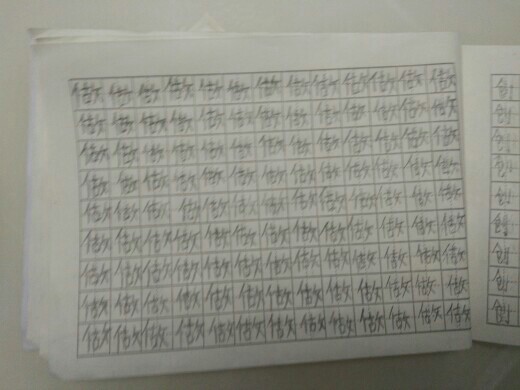 做做做做做做做做做做做做做
做做做做做做做做做做做做做
做做做做做做做做做做做做做
做做做做做做做做做做做做做
做做做做做做做做做做做做做
做做做做做做做做做做做做做
做做做做做做做做做做做做做
做做做做做做做做做做做做做
做做做做做做做做做做做做做
创
创
创
创
创
创
创
创
创